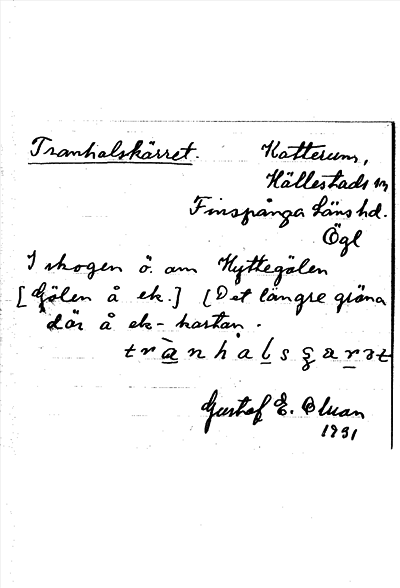 Tranhalskärret.
Katterum,
Hällestads sn
Finspånga läns hd.
Ögl
I skogen ö. om Hyttegölen
[Gölen å ek.] (Det längre gröna
där å ek-kartan.
Gustaf E. Olsson
1931